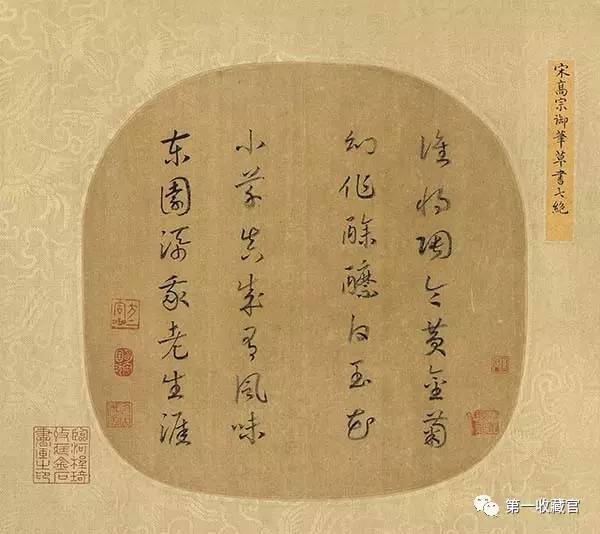 宋高宗御筆草書七絕
誰將陶令黃金菊
幻作酴醿白玉花
小草真成有風味
東園添我老生涯
第一收藏官